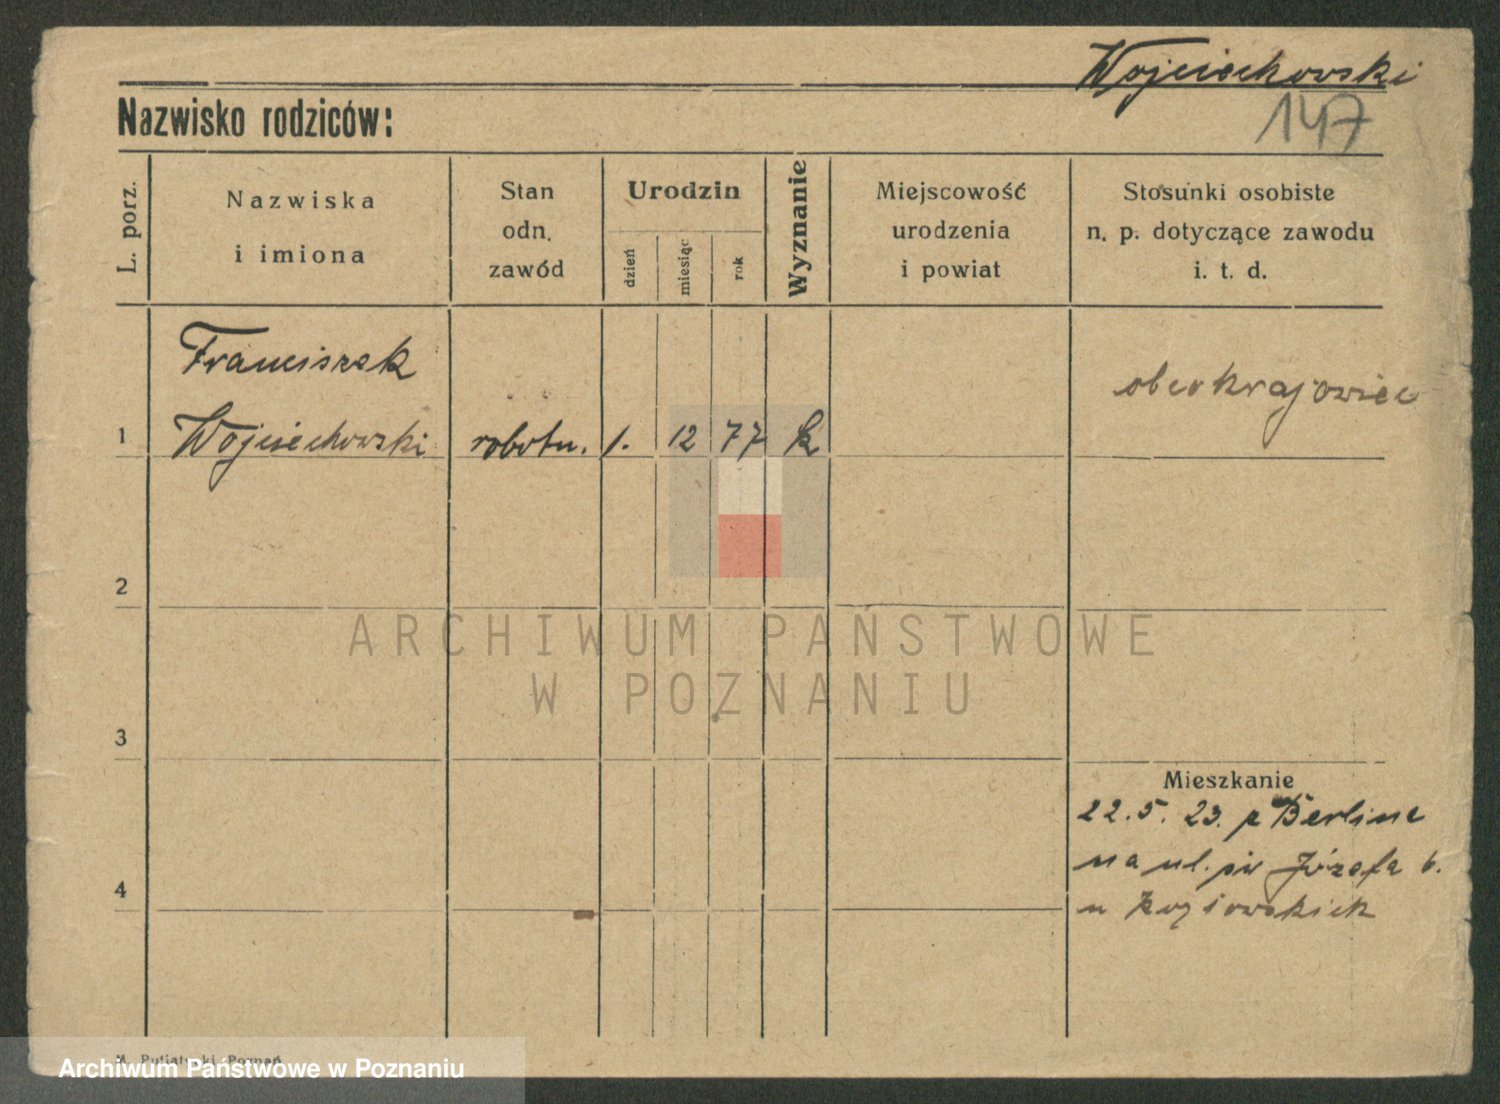 Wojciechowski
147
Nazwisko rodziców:
L. porz.
Nazwiska
i imiona
Stan
odn.
zawód
Urodzin
dzień
miesiąc
rok
Wyznanie
Miejscowość
urodzenia
i powiat
Stosunki osobiste
n. p. dotyczące zawodu
i. t. d.
Franciszek
1 Wojciechowski robotn. 1. 12 77 k
obcokrajowiec
2
3
4
Mieszkanie
22. 5. 23. z Berlina
na ul. św Józefa 6.
u
ARCHIWUM PAŃSTWOWE
W POZNANIU
Poznań
Archiwum Państwowe w Poznaniu